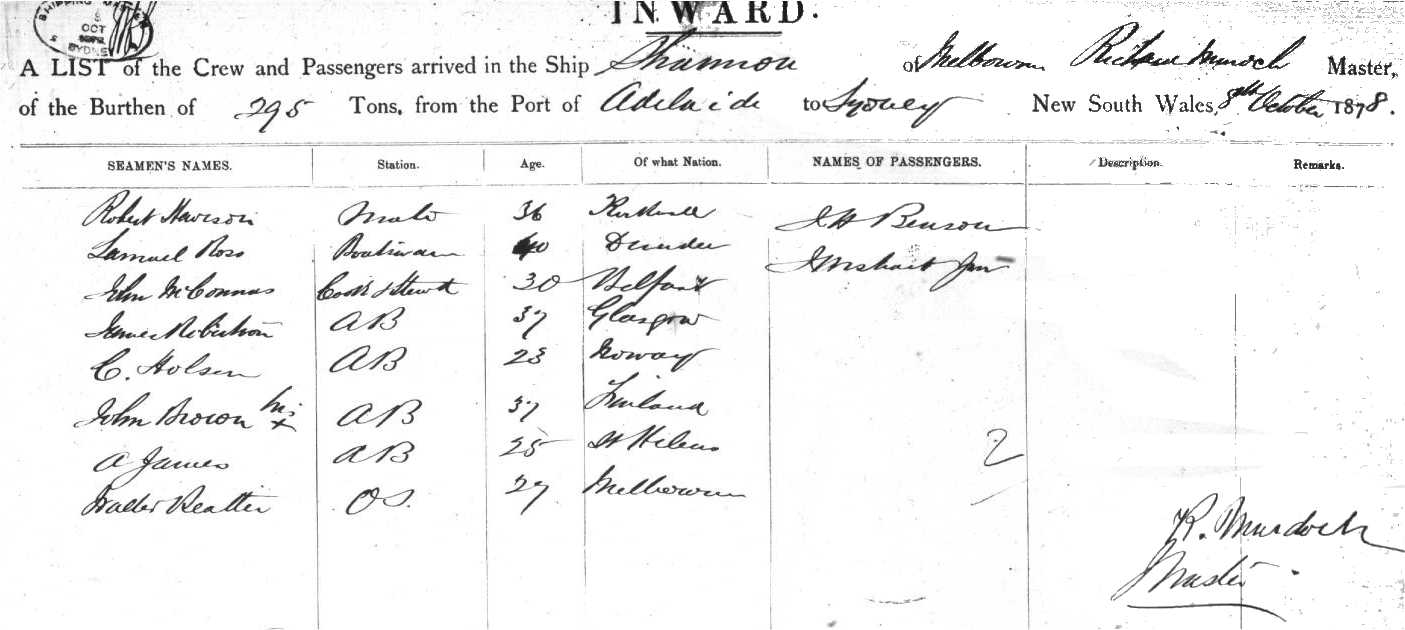 SHIPPING MASTER
8
OCT
1878
SYDNEY
INWARD.
A LIST of the Crew and Passengers arrived in the Ship Shannon of Melbourne Richard Murdoch Master,
of the Burthen of 295 Tons, from the Port of Adelaide to Sydney New South Wales, 8th October 1878.
SEAMEN'S NAMES. Station. Age. Of what Nation. NAMES OF PASSENGERS. Description. Remarks.
Robert Mate 36 Kirkwall J H Benson
Samuel Ross Boatswain 40 Dundee Jun
John Cook & Stewd 30 Belfast
James Robertson AB 37 Glasgow
C. Holsen AB 23 Norway
John Brown his x AB 37 Finland
A James AB 25 St Helens
2
Walter OS. 27 Melbourne
R. Murdoch
Master